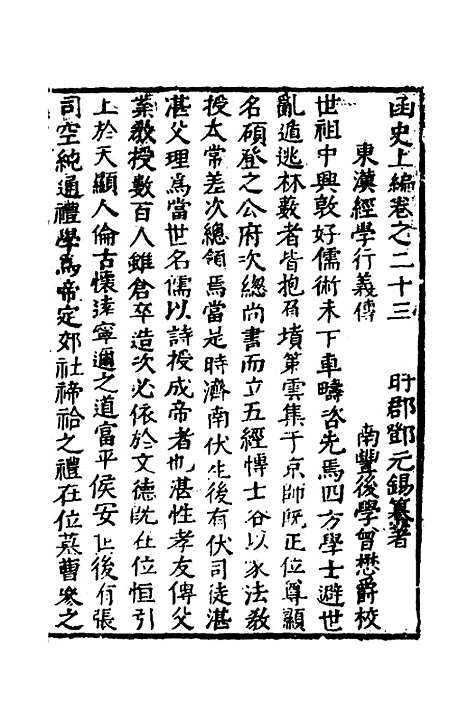 函史上編卷之二十三　　盱郡鄧元錫纂著
東漢經學行義傳　　南豐後學曾懋爵校
世祖中興敦好儒術未下車疇咨先焉四方學士避世
亂遁逃林藪者皆抱負墳策雲集于京師既正位尊顯
名碩登之公府次總尚書而立五經博士各以家法教
授太常差次總領焉當是時濟南伏生後有伏司徒湛
湛父理爲當世名儒以詩授成帝者也湛性孝友傳父
業教授數百人雖倉卒造次必依於文德既在位恒引
上於天顯人倫古懷遠寧邇之道富平侯安世後有張
司空純通禮學爲帝定郊社禘祫之禮在位慕曹參之